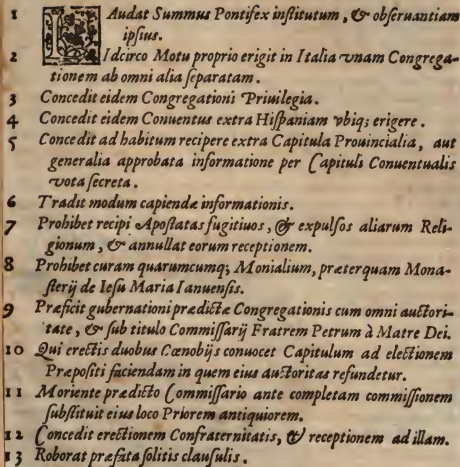 1 LAudat Summus Pontifex institutum, & obseruantiam
ipsius.
2 Idcirco Motu proprio erigit in Italia vnam Congrega-
tionem ab omni alia separatam.
3 Concedit eidem Congregationi Priuilegia.
4 Concedit eidem Conuentus extra Hispaniam vbiq; erigere.
5 Concedit ad habitum recipere extra Capitula Prouincialia, aut
generalia approbata informatione per Capituli Conuentualis
vota secreta.
6 Tradit modum capiendæ informationis.
7 Prohibet recipi Apostatas fugitiuos, & expulsos aliarum Reli-
gionum, & annullat eorum receptionem.
8 Prohibet curam quarumcumq; Monialium, præterquam Mona-
sterij de Iesu Maria Ianuensis.
9 Præficit gubernationi prædictæ Congregationis cum omni auctori-
tate, & sub titulo Commissarij Fratrem Petrum à Matre Dei.
10 Qui erectis duobus Cœnobijs conuocet Capitulum ad electionem
Præpositi faciendam in quem eius auctoritas refundetur.
11 Moriente prædicto Commissario ante completam commissionem
substituit eius loco Priorem antiquiorem.
12 Concedit erectionem Confraternitatis, & receptionem ad illam.
13 Roborat præfata solitis clausulis.